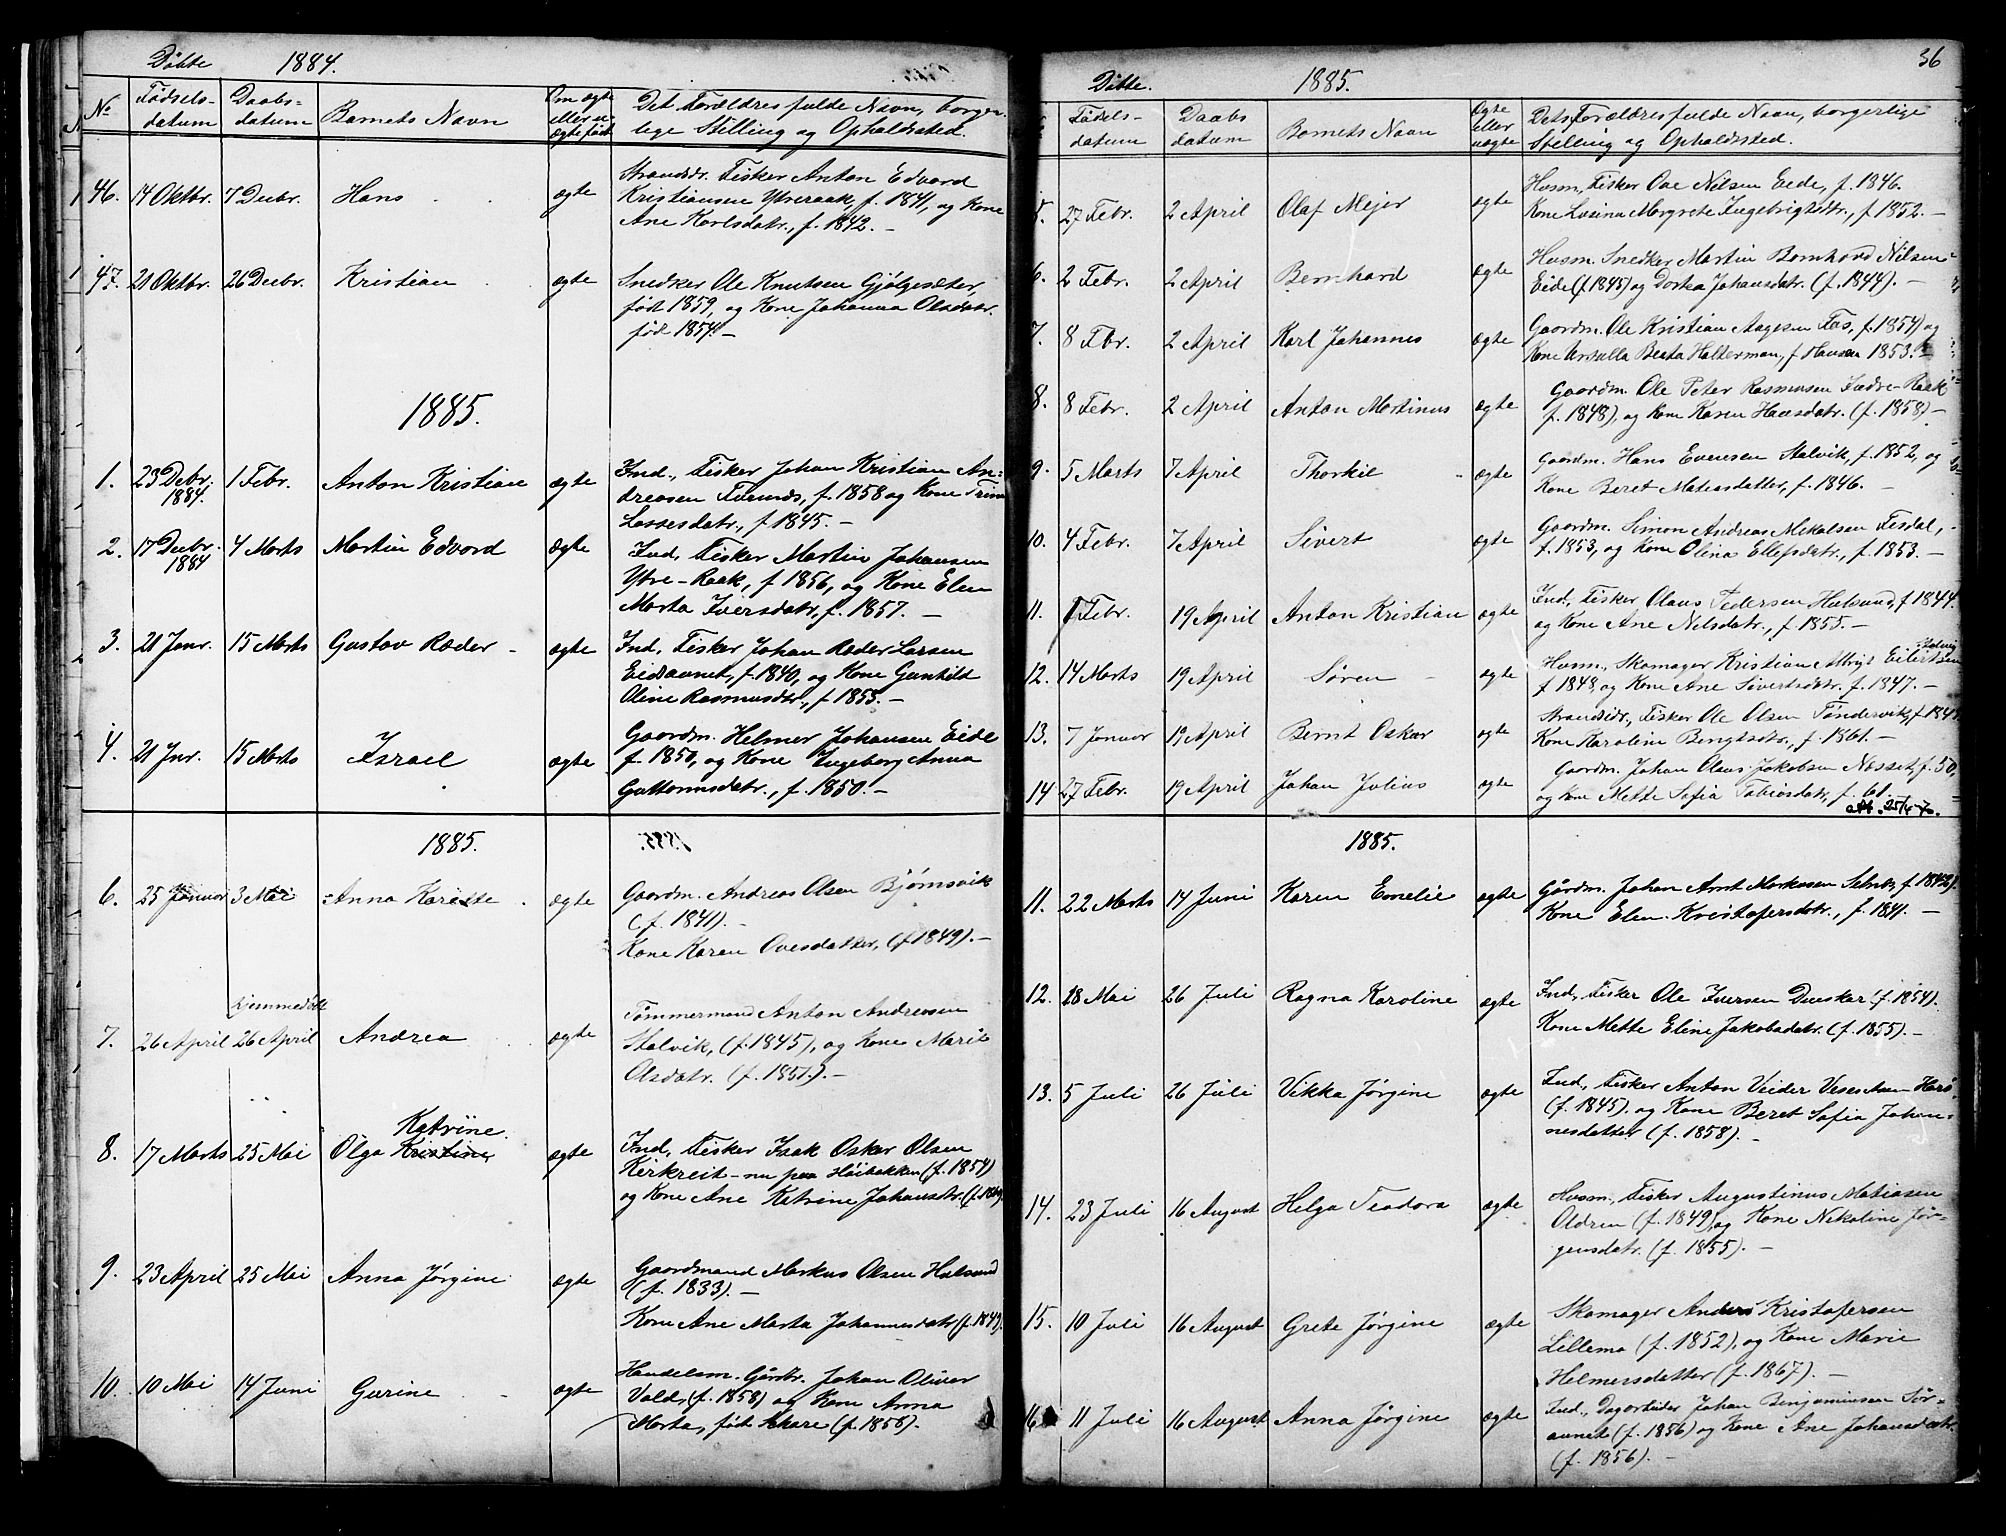 Døbte 1884.
No Fødsels-datum Daabs-datum Barnets Navn Om ægte eller uægte født Det Forældres fulde Navn, borgerlige Stilling og Opholdssted.
46. 14 Oktbr. 7 Decbr. Hans ægte Strandsdr. Fisker Anton Edvard
Kristiansen Ytreraak, f. 1841, og Kone
Ane Karlsdatr., f. 1842. —
47. 21 Oktbr. 26 Decbr. Kristian ægte Snedker Ole Knutsen Gjølgesæter,
født 1859, og Kone Johanna Olsdatr.
født 1854. —
1885.
1. 23 Debr. 1884. 1 Febr. Anton Kristian ægte Ind., Fisker Johan Kristian An-
dreasen, f. 1858 og Kone Trine
Lassesdatr., f. 1845. —
2. 17 Decbr. 1884 4 Marts Martin Edvard ægte Ind., Fisker Martin Johansen
Ytre-Raak, f. 1856, og Kone Elen
Marta Iversdatr., f. 1857. —
3. 21 Janr. 15 Marts Gustav Ræder - ægte Ind., Fisker Johan Ræder Larsen
Eidsaunet, f. 1840, og Kone Gunhild
Oline Rasmusdtr., f. 1855. —
4. 21 Jnr. 15 Marts Israel ægte Gaardm. Helmer Johansen Eide
f. 1850, og Kone Ingeborg Anna
Guttormsdatr., f. 1850. —
1885.
6. 25 Januar 3 Mai Anna Karette ægte Gaardm. Andreas Olsen Bjørnsvik
(f. 1841). —
Kone Karen Ovesdatter, (f 1849). —
hjemmedøbt
7. 26 April 26 April Andrea ægte Tømmermand Anton Andreasen
Stalvik, (f. 1845), og Kone Marit
Olsdatr. (f. 1851.) —
Katrine.
8. 17 Marts 25 Mai Olga Kristine ægte Ind., Fisker Isak Oskar Olsen
Kirkreit - nu paa Høibakken (f. 1854)
og Kone Ane Katrine Johansdtr.
9. 23 April 25 Mai Anna Jørgine ægte Gaardmand Markus Olsen Hulsund
(f. 1833). —
Kone Ane Marta Johannesdatr (f. 1849).
10. 10 Mai 14 Juni Gurine ægte Handelsm. Gårdbr. Johan Oliver
Vald, (f. 1858) og Kone Anna
Marta, født Skare (f. 1856).
36
Døbte. 1885.
Fødsels-datum Daabs datum Barnets Navn Ægte eller uægte Dets Forældres fulde Navn, borgerlige Stilling og Opholdssted.
5. 27 Febr. 2 April Olaf Mejer ægte Husm., Fisker Ove Nilsen Eide, f. 1846.
Kone Lusina Margrete Ingebrigtsdtr., f 1852. —
6. 2 Febr. 2 April Bernhard ægte Husm. Snedker Martin Bernhard Nilsen
Eide (f 1845) og Dorka Johansdatr. (f. 1844). —
7. 8 Fbr. 2 April Karl Johannes ægte Gaardm. Ole Kristian Aagesen, f. 1854) og
Kone Ursulla Beata Halterman, f Hansen 1853.
8. 8 Febr. 2 April Anton Martinus ægte Gaardm. Ole Peter Rasmusen Indre-Raak
f. 1848), og Kone Karen Hansdatr. (f. 1858) —
9. 5 Marts 7 April Thorkil ægte Gaardm. Hans Evensen Stalvik, f. 1852, og
Kone Beret Matiasdatter, f. 1846. —
10. 4 Febr. 7 April Sivert ægte Gaardm. Simon Andreas Mikalsen Fisdal,
f. 1853, og Kone Olina Ellefsdatr., f. 1853. —
11. 1 Febr. 19 April Anton Kristian ægte Ind., Fisker Olaus Pedersen Hulsund, f 1844.
og Kone Ane Nilsdatr., f 1855. —
12. 14 Marts 19 April Søren ægte Husm., Skomager Kristian Albrigt Eilertsen Stalvig
f 1848, og Kone Ane Sivertsdatr. f. 1847. —
13. 7 Januar 19 April Bernt Oskar ægte Strandsidr., Fisker Ole Olsen Tøndervik,
Kone Karoline Bengtsdtr., f. 1861. —
14 27 Febr. 19 April Johan Julius ægte Gaardm. Johan Olaus Jakobsen Næsset, f. 50,
og Kone Mette Sofia Tobiasdatr, f. 61.
att. 25/4 70.
1885.
11. 22 Marts 14 Juni Karen Emelie ægte Gårdm. Johan Arnt Markusen Selnes, f 1842).
Kone Elen Kristofersdatr., f. 1841. —
12. 18 Mai 26 Juli Ragna Karoline ægte Ind., Fisker Ole Iversen Duesker (f. 1854).
Kone Mette Eline Jakobsdatr. (f. 1855). —
13. 5 Juli 26 Juli Vikka Jørgine ægte Ind., Fisker Anton Veider
(f. 1845). og Kone Beret Sofia Johan-
nesdatter (f. 1858). —
14. 23 Juli 16 August Helga Teodora ægte Husm., Fisker Augustinus Matiasen
Oldren (f. 1849), og Kone Nikoline Jør-
gensdatr. (f. 1855). —
15. 10 Juli 16 August Grete Jørgine ægte Skomager Anders Kristofersen
Lillemo (f. 1852), og Kone Marie
Helmersdatter (f. 1867). —
16 11 Juli 16 August Anna Jørgine ægte Ind., Dagarbeider Johan Benjaminsen Sør-
aunet (f. 1856) og Kone Ane Johansdatr.
(f. 1856). —